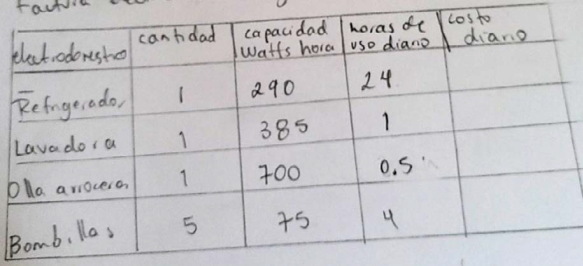 Factura
electrodomestico cantidad capacidad Watts hora horas de uso diano costo diario
Refrigerador 1 290 24
Lavadora 1 385 1
Olla arrocera 1 700 0.5
Bombillas 5 75 4